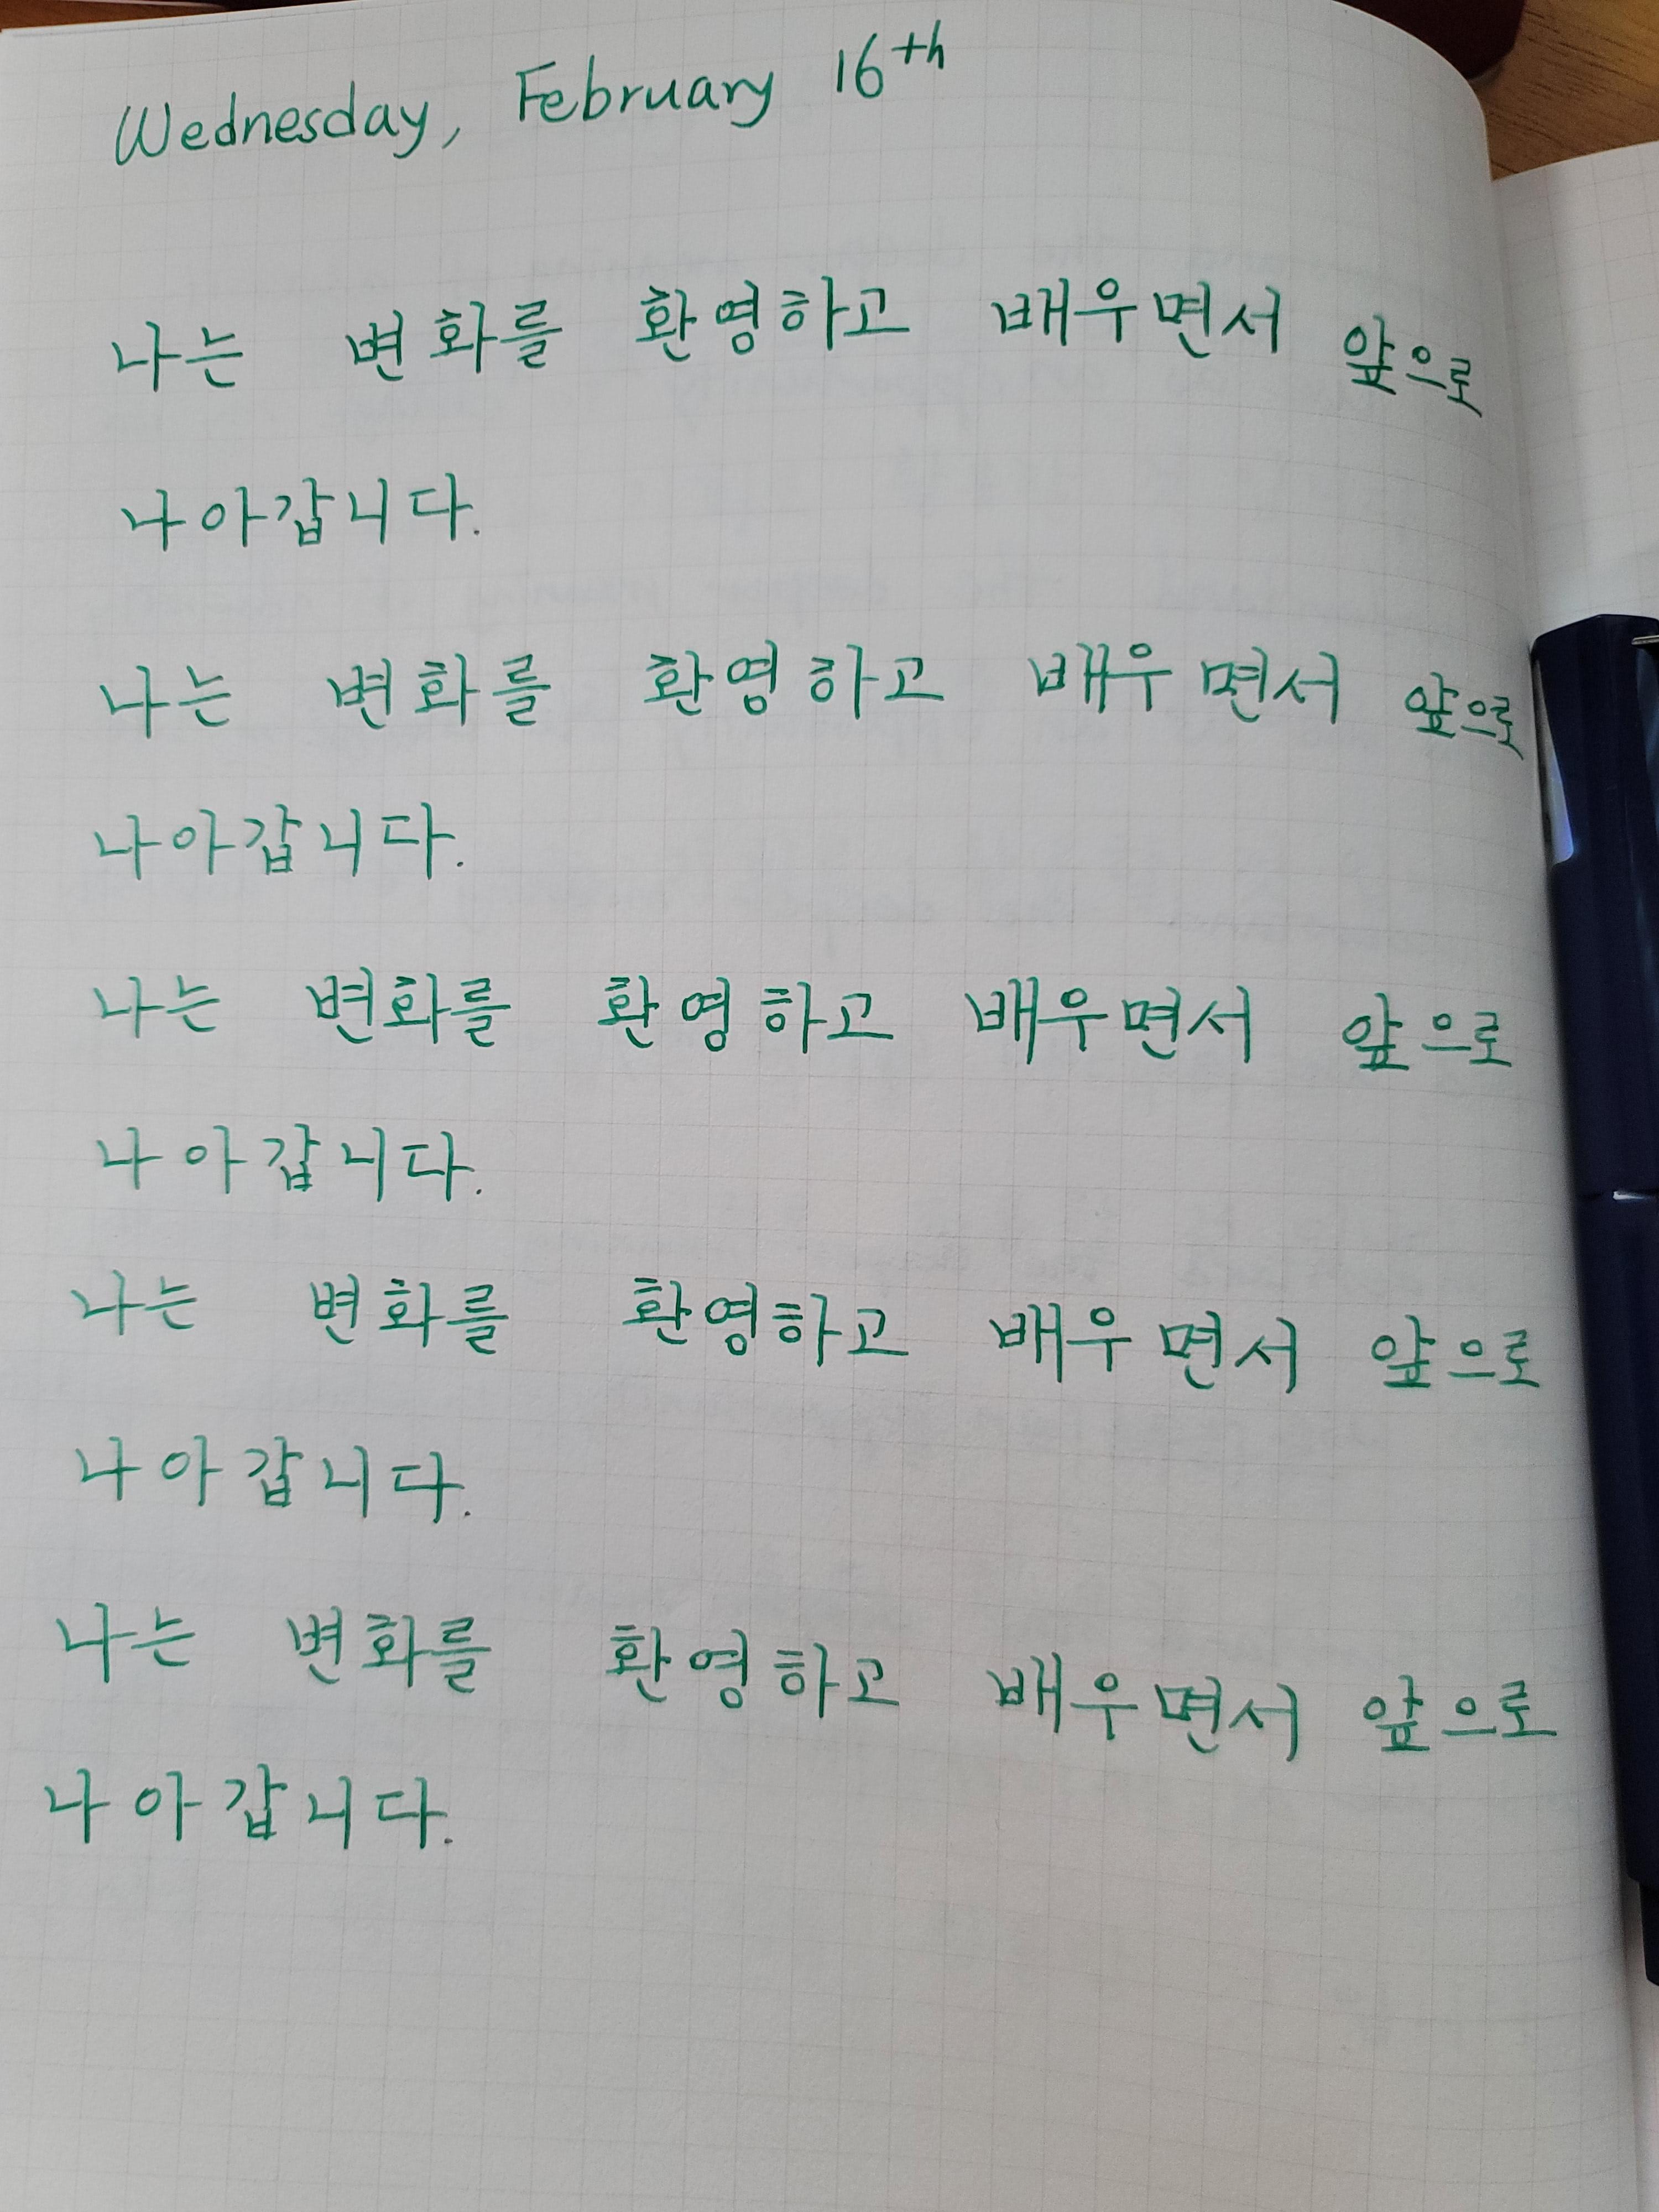 Wednesday, February 16th
나는 변화를 환영하고 배우면서 앞으로
나아갑니다.
나는 변화를 환영하고 배우면서 앞으로
나아갑니다.
나는 변화를 환영하고 배우면서 앞으로
나아갑니다.
나는 변화를 환영하고 배우면서 앞으로
나아갑니다.
나는 변화를 환영하고 배우면서 앞으로
나아갑니다.